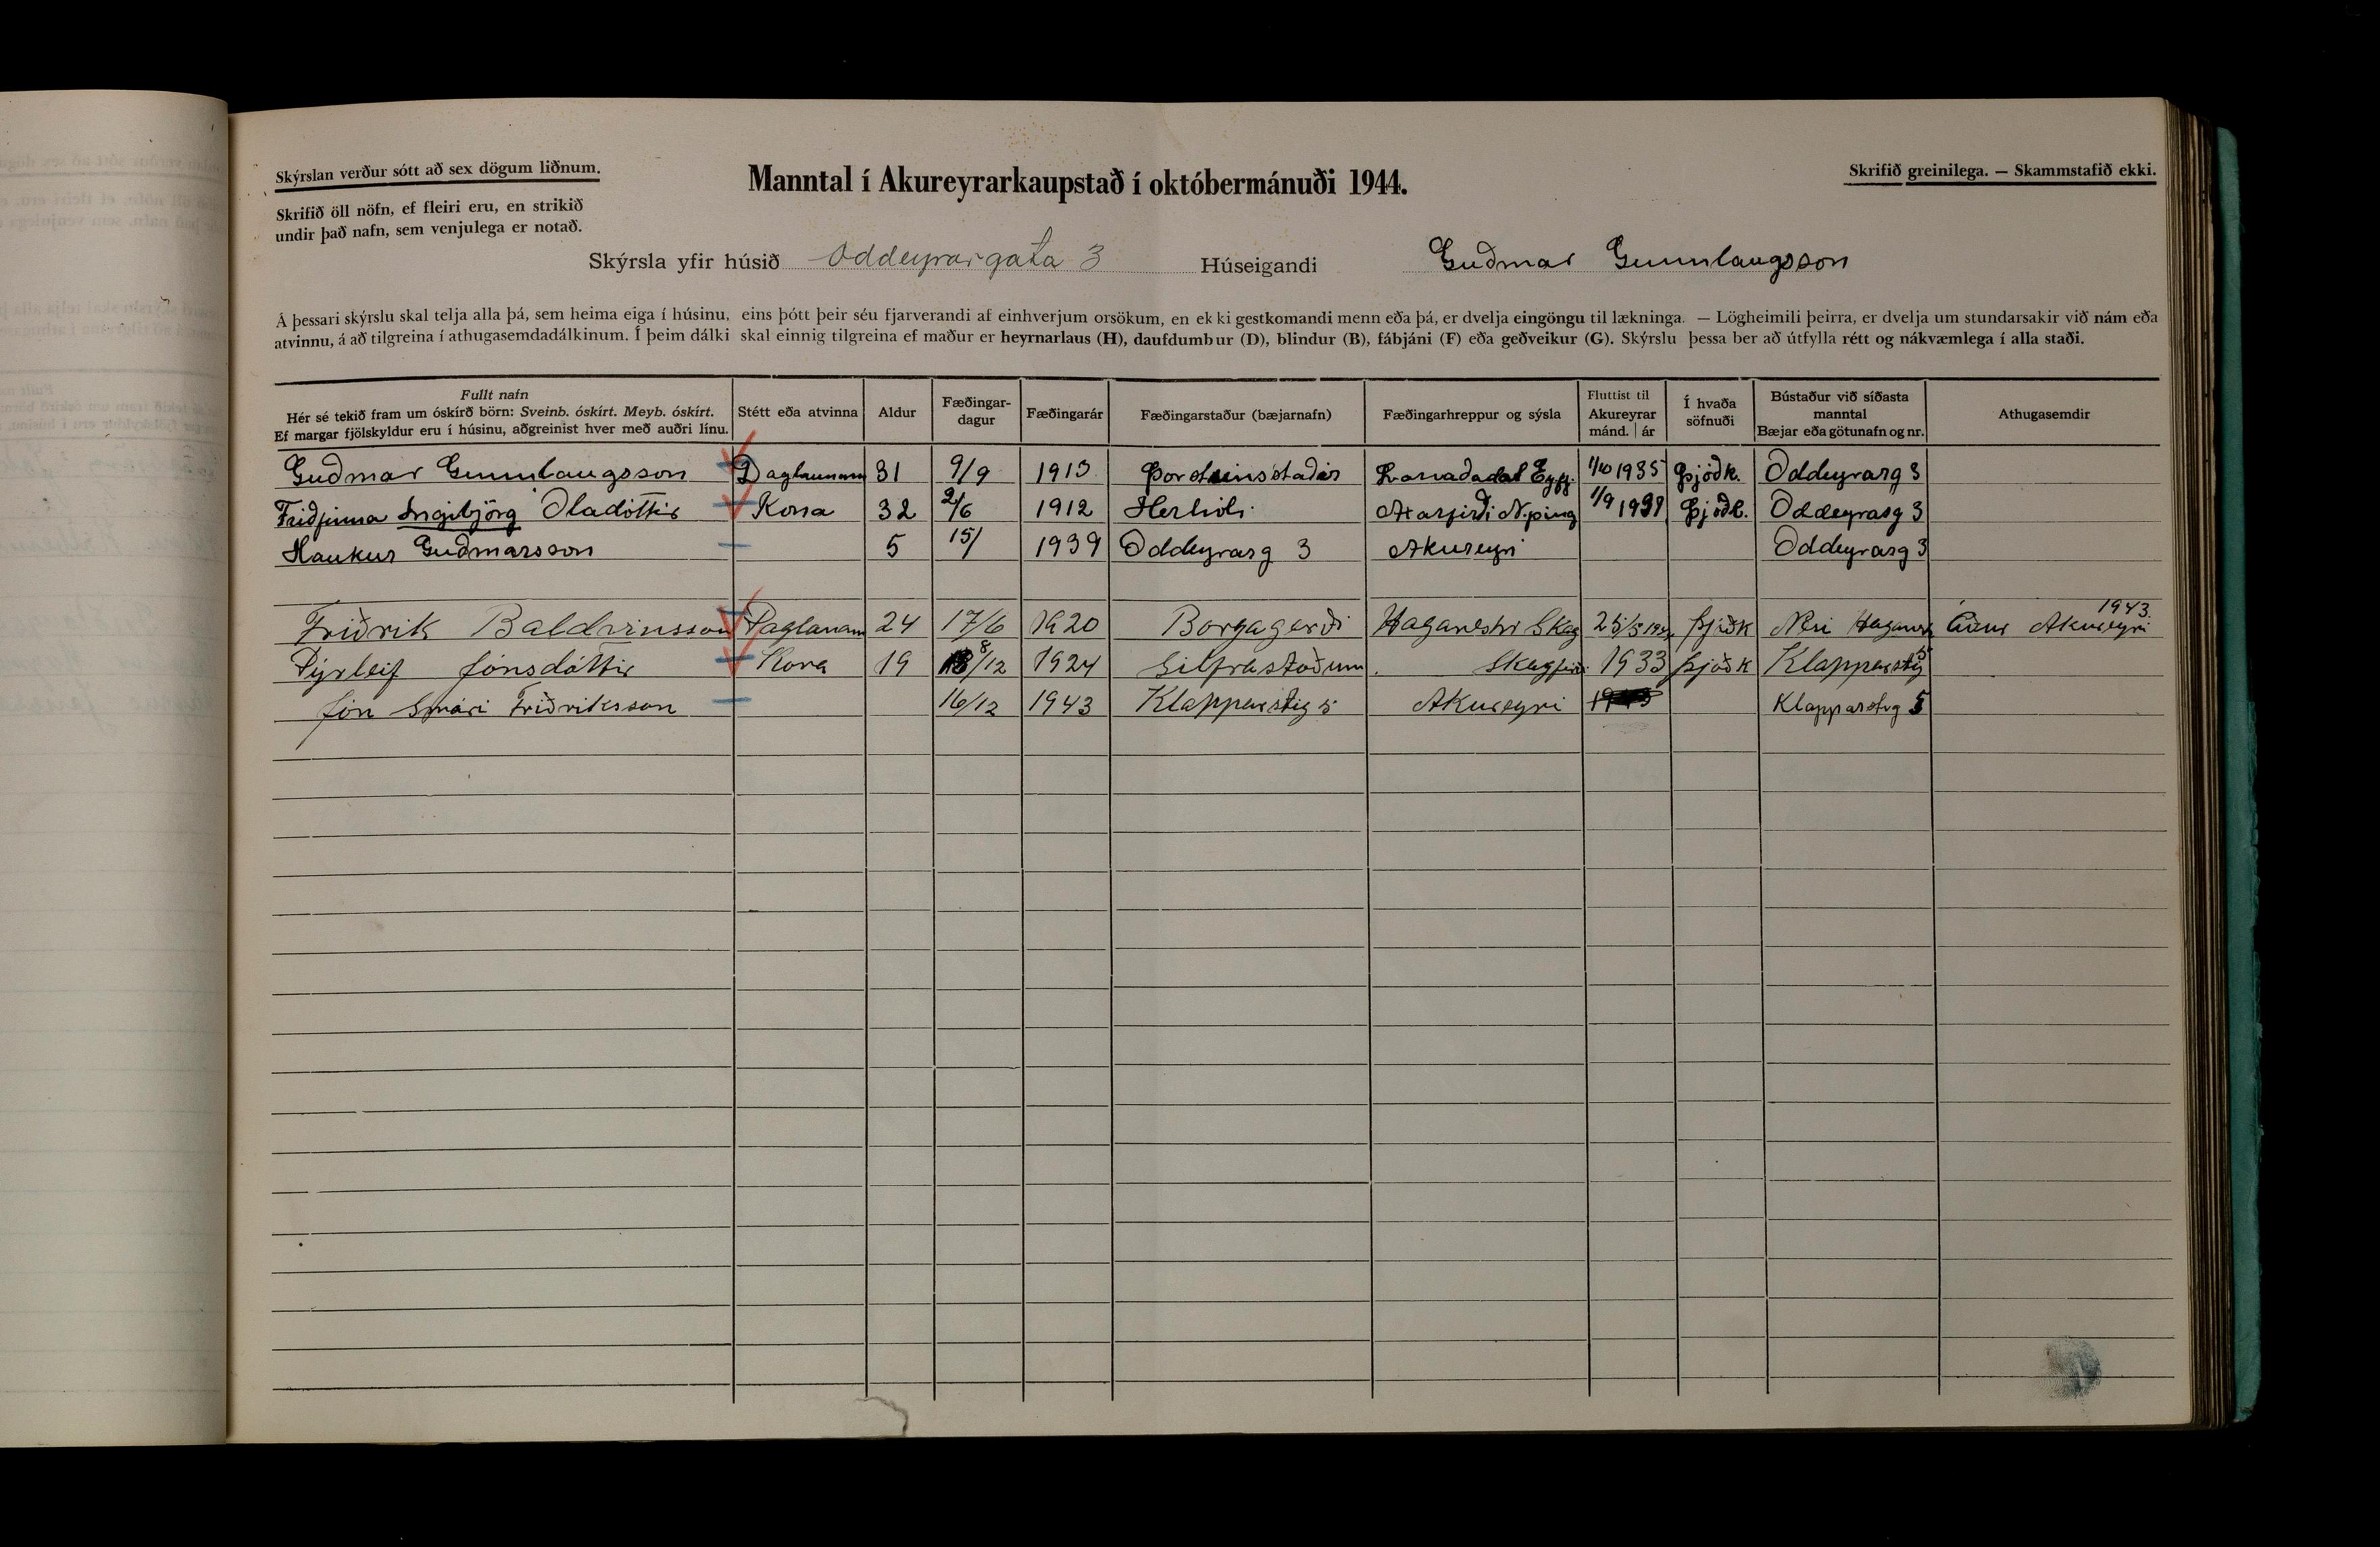 Skýrslan verður sótt að sex dögum liðnum.
Manntal í Akureyrarkaupstað í októbermánuði 1944.
Skrifið greinilega. — Skammstafið ekki.
Skrifið öll nöfn, ef fleiri eru, en strikið
undir það nafn, sem venjulega er notað.
Skýrsla yfir húsið Oddeyrargata 3 Húseigandi Guðmar Gunnlaugsson
Á þessari skýrslu skal telja alla þá, sem heima eiga í húsinu, eins þótt þeir séu fjarverandi af einhverjum orsökum, en ekki gestkomandi menn eða þá, er dvelja eingöngu til lækninga. — Lögheimili þeirra, er dvelja um stundarsakir við nám eða
atvinnu, á að tilgreina í athugasemdadálkinum. Í þeim dálki skal einnig tilgreina ef maður er heyrnarlaus (H), daufdumbur (D), blindur (B), fábjáni (F) eða geðveikur (G). Skýrslu þessa ber að útfylla rétt og nákvæmlega í alla staði.
Fullt nafn
Hér sé tekið fram um óskírð börn: Sveinb. óskírt. Meyb. óskírt.
Ef margar fjölskyldur eru í húsinu, aðgreinist hver með auðri línu.
Stétt eða atvinna
Aldur
Fæðingar-
dagur
Fæðingarár
Fæðingarstaður (bæjarnafn)
Fæðingarhreppur og sýsla
Fluttist til
Akureyrar
mánd. | ár
Í hvaða
söfnuði
Bústaður við síðasta
manntal
Bæjar eða götunafn og nr.
Athugasemdir
Guðmar Gunnlaugsson Daglaunam 31 9/9 1913 Þorsteinsstaðir 1/10 1935 Þjóðk. Oddeyrarg 3
Friðfinna Ingibjörg Óladóttir Kona 32 2/6 1912 N.þing 1/9 Oddeyrarg 3
Haukur Guðmarsson 5 15/ 1939 Oddeyrarg 3 Akureyri Oddeyrarg 3
Friðrik Baldvinsson Daglaunam 24 17/6 1920 Borgagerði Haganeshr Skag 25/5 Þjóðk Haganesh Akureyri 1943.
Týrleif Jónsdóttir Kona 19 8/12 1924 Silfrastöðum 1933 Þjóðk Klapparstíg 5
Jón Smári Friðriksson 16/12 1943 Klapparstíg 5 Akureyri Klapparstíg 5